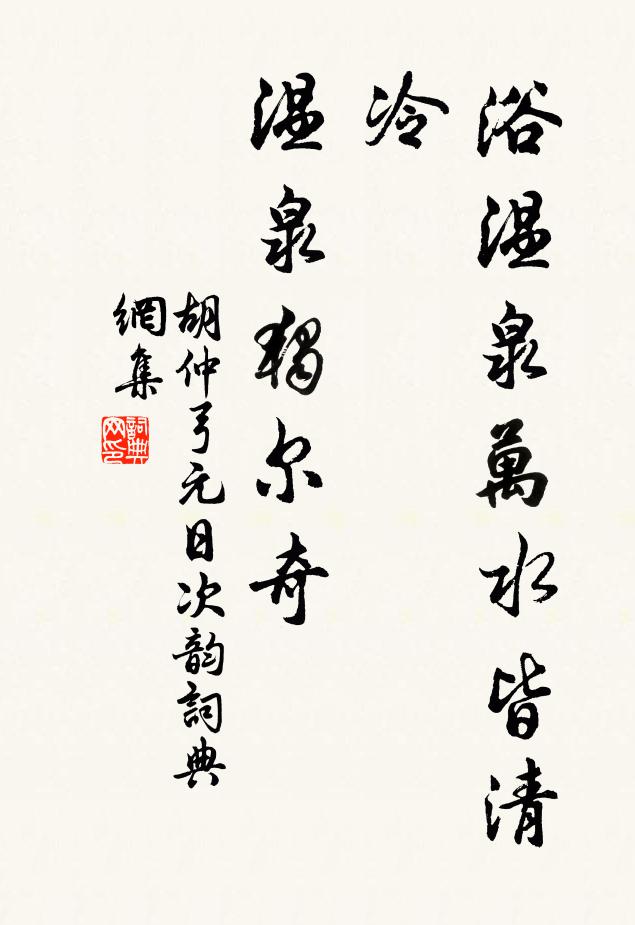 浴温泉萬水皆清
冷
温泉独尔奇
胡仲弓元日次韵詞典
網集
詞典
网印